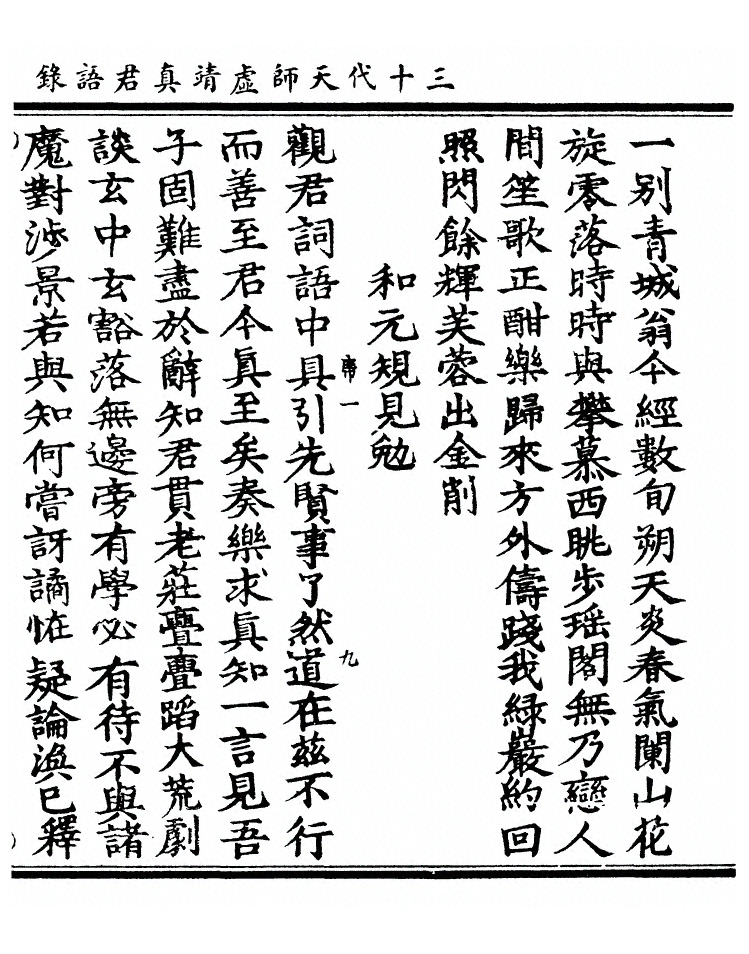 三十代天師虛靖真君語錄
一别青城翁今經數旬朔天炎春氣闌山花
旋零落時時與攀慕西眺步瑶閣無乃戀人
間笙歌正酣樂歸來方外儔踐我緑巖約回
照閃餘輝芙蓉出金削
和元規見勉
觀君詞語中具引先賢事了然道在兹不行
席一
九
而善至君今眞至矣奏樂求眞知一言見吾
子固難盡於辭知君貫老莊亹亹蹈大荒劇
談玄中玄豁落無邊旁有學必有待不與諸
魔對涉景若與知何嘗訝譎恠疑論渙已釋